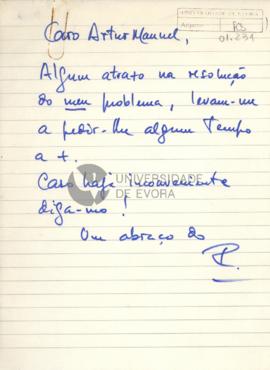 R3
01.234
Caro Artur Manuel,
Algum atrazo na resolução
do meu problema, levam-me
a pedir-lhe algum tempo
a +.
Caso haja inconveniente
diga-mo!
UNIVERSIDADE
DE ÉVORA
Um abraço do
P.